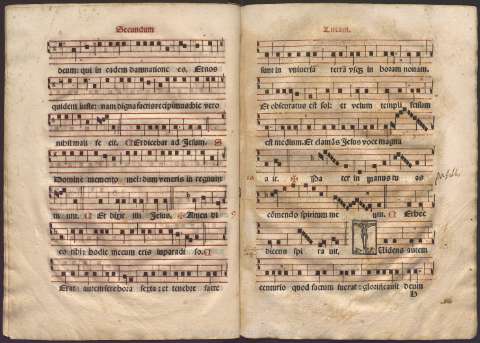 Secundum
deum: qui in eadem damnatione es. Et nos
quidem iuste: nam digna factis recipimus hic vero
nihil mali fe cit. Et dicebat ad Jesum.
Domine memento mei: dum veneris in regnum
tu um. Et dixit illi Jesus. Amen di
co tibi: hodie mecum eris in paradi so.
Erat autem fere hora sexta: et tenebre facte
Lucam.
sunt in vniuersa terrā vsq; in horam nonam.
Et obscuratus est sol: et velum templi scissum
est medium. Et clamās Jesus voce magna
a it. Pa ter in manus tu as
cōmendo spiritum me um. Et hec
dicens spi ra uit. Uidens autem
centurio quod factum fuerat: glorificauit deum